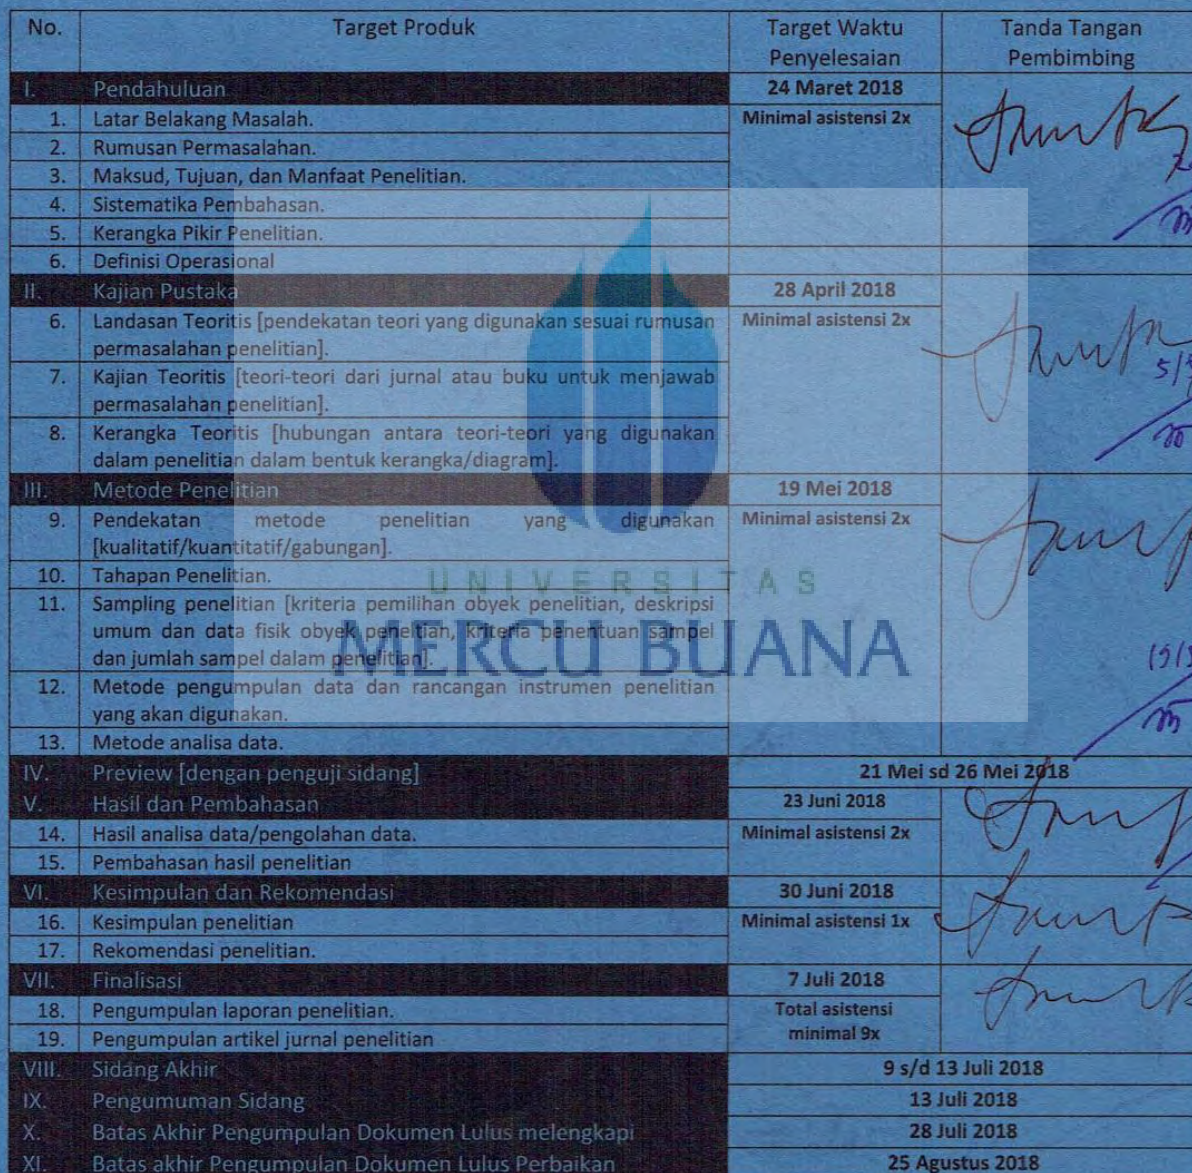 No. Target Produk Target Waktu Penyelesaian Tanda Tangan Pembimbing
I. Pendahuluan 24 Maret 2018
1. Latar Belakang Masalah. Minimal asistensi 2x
2. Rumusan Permasalahan.
3. Maksud, Tujuan, dan Manfaat Penelitian.
4. Sistematika Pembahasan.
5. Kerangka Pikir Penelitian.
6. Definisi Operasional
II. Kajian Pustaka 28 April 2018
6. Landasan Teoritis [pendekatan teori yang digunakan sesuai rumusan Minimal asistensi 2x
permasalahan penelitian].
7. Kajian Teoritis [teori-teori dari jurnal atau buku untuk menjawab
permasalahan penelitian].
8. Kerangka Teoritis [hubungan antara teori-teori yang digunakan
dalam penelitian dalam bentuk kerangka/diagram].
III. Metode Penelitian 19 Mei 2018
9. Pendekatan metode penelitian yang digunakan Minimal asistensi 2x
[kualitatif/kuantitatif/gabungan].
10. Tahapan Penelitian.
UNIVERSITAS
11. Sampling penelitian [kriteria pemilihan obyek penelitian, deskripsi
umum dan data fisik obyek peneltian, kriteria penentuan sampel
dan jumlah sampel dalam penelitian].
MERCU BUANA
12. Metode pengumpulan data dan rancangan instrumen penelitian
yang akan digunakan.
13. Metode analisa data.
IV. Preview [dengan penguji sidang] 21 Mei sd 26 Mei 2018
V. Hasil dan Pembahasan 23 Juni 2018
14. Hasil analisa data/pengolahan data. Minimal asistensi 2x
15. Pembahasan hasil penelitian
VI. Kesimpulan dan Rekomendasi 30 Juni 2018
16. Kesimpulan penelitian Minimal asistensi 1x
17. Rekomendasi penelitian.
VII. Finalisasi 7 Juli 2018
18. Pengumpulan laporan penelitian. Total asistensi
19. Pengumpulan artikel jurnal penelitian minimal 9x
VIII. Sidang Akhir 9 s/d 13 Juli 2018
IX. Pengumuman Sidang 13 Juli 2018
X. Batas Akhir Pengumpulan Dokumen Lulus melengkapi 28 Juli 2018
XI. Batas akhir Pengumpulan Dokumen Lulus Perbaikan 25 Agustus 2018